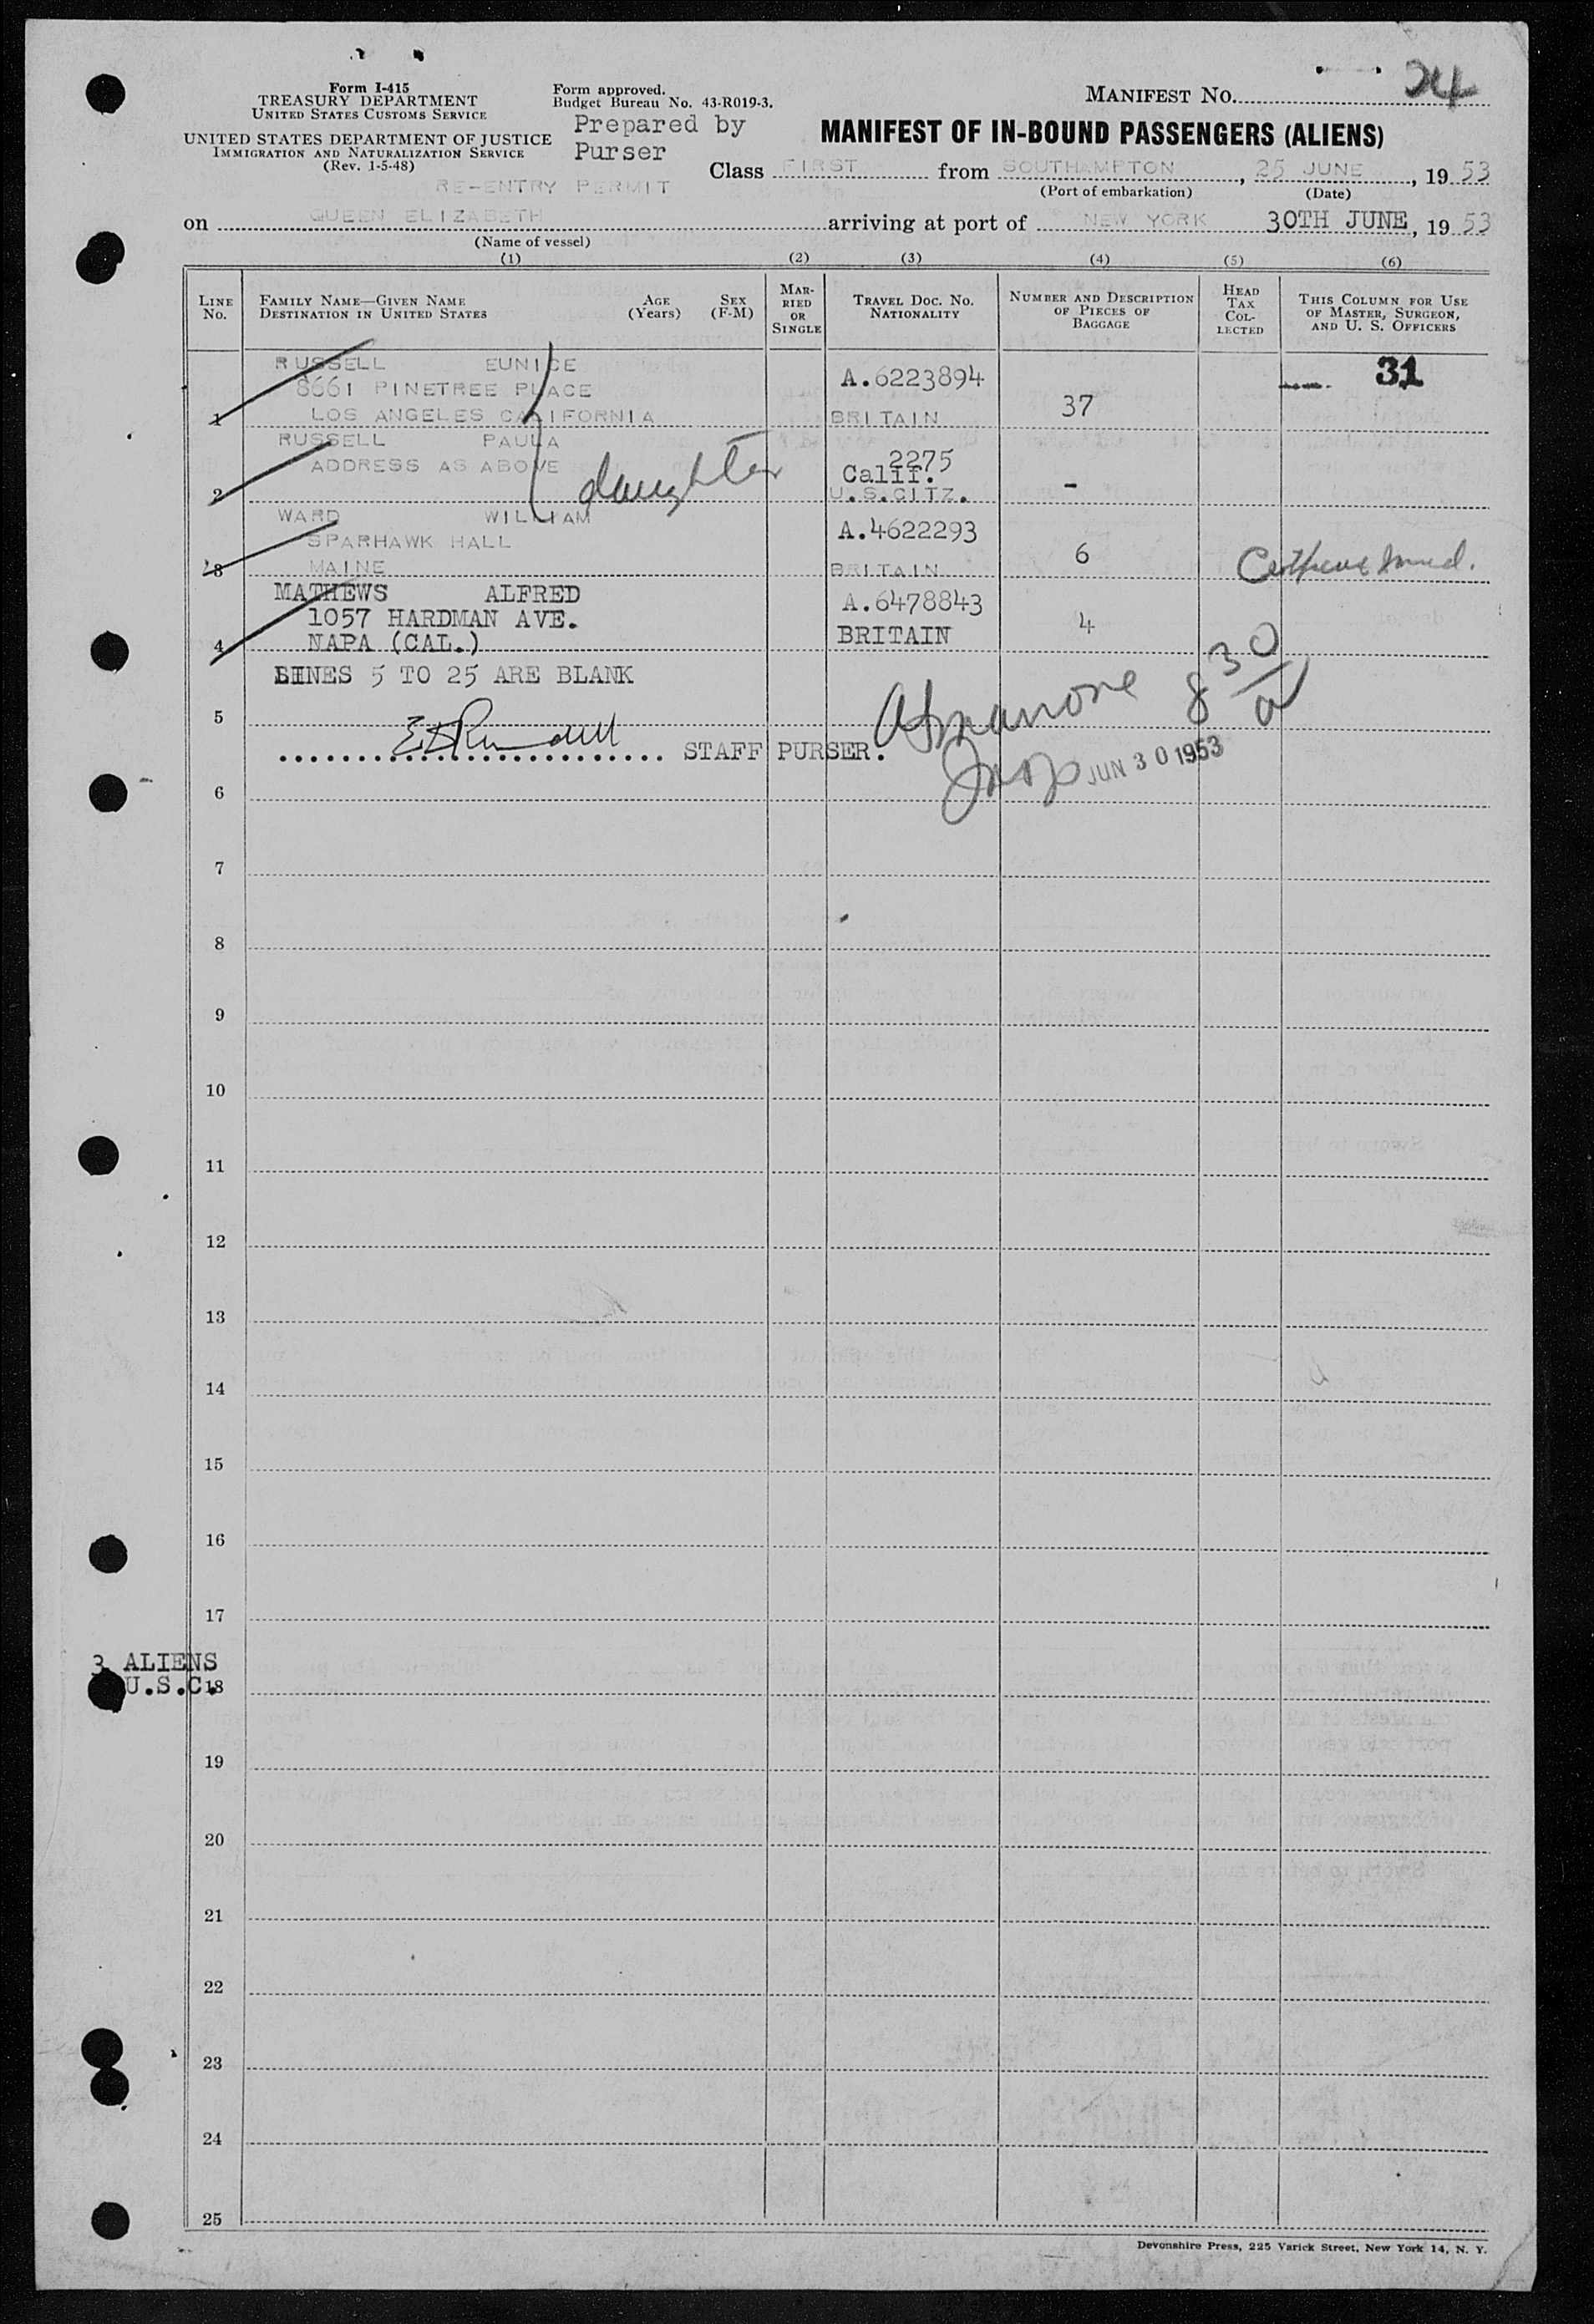 Form I-415
TREASURY DEPARTMENT
UNITED STATES CUSTOMS SERVICE
UNITED STATES DEPARTMENT OF JUSTICE
IMMIGRATION AND NATURALIZATION SERVICE
(Rev. 1-5-48)
Form approved.
Budget Bureau No. 43-R019-3.
Prepared by
Purser
RE-ENTRY PERMIT
MANIFEST NO. 24
MANIFEST OF IN-BOUND PASSENGERS (ALIENS)
Class FIRST from SOUTHAMPTON, 25 JUNE, 1953
(Port of embarkation) (Date)
on QUEEN ELIZABETH arriving at port of NEW YORK 30TH JUNE, 1953
(Name of vessel)
(1) (2) (3) (4) (5) (6)
LINE No.
FAMILY NAME—GIVEN NAME
DESTINATION IN UNITED STATES
AGE (Years)
SEX (F-M)
MARRIED OR SINGLE
TRAVEL DOC. NO. NATIONALITY
NUMBER AND DESCRIPTION OF PIECES OF BAGGAGE
HEAD TAX COLLECTED
THIS COLUMN FOR USE OF MASTER, SURGEON, AND U. S. OFFICERS
31
RUSSELL EUNICE
8661 PINETREE PLACE A.6223894
1 LOS ANGELES CALIFORNIA BRITAIN 37
RUSSELL PAULA
ADDRESS AS ABOVE daughter 2275
Calif.
2 U.S.CITZ. -
WARD WILLIAM
SPARHAWK HALL A.4622293
3 MAINE BRITAIN 6
MATHEWS ALFRED
1057 HARDMAN AVE. A.6478843
4 NAPA (CAL.) BRITAIN 4
LINES 5 TO 25 ARE BLANK
8 30/a
5
STAFF PURSER.
JUN 30 1953
6
7
8
9
10
11
12
13
14
15
16
17
3 ALIENS
U.S.C.
18
19
20
21
22
23
24
25
Devonshire Press, 225 Varick Street, New York 14, N. Y.